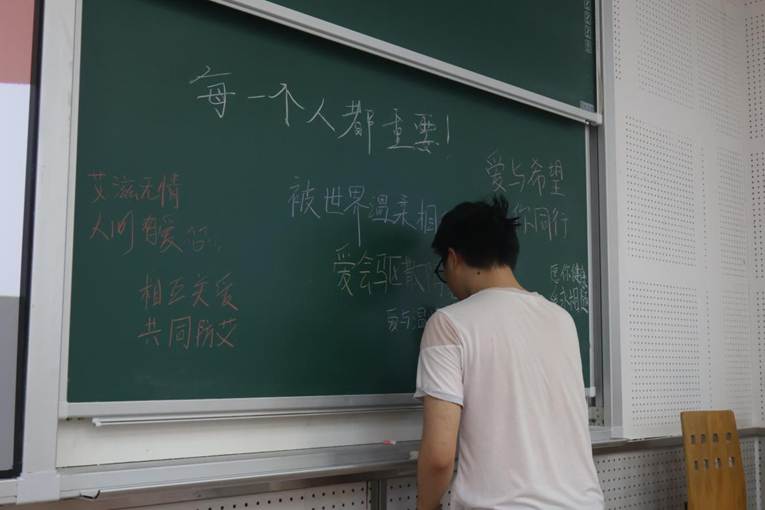 每一个人都重要！
艾滋无情
人间有爱
相互关爱
共同防艾
被世界温柔相
爱会驱散
与
爱与希望
你同行
愿你